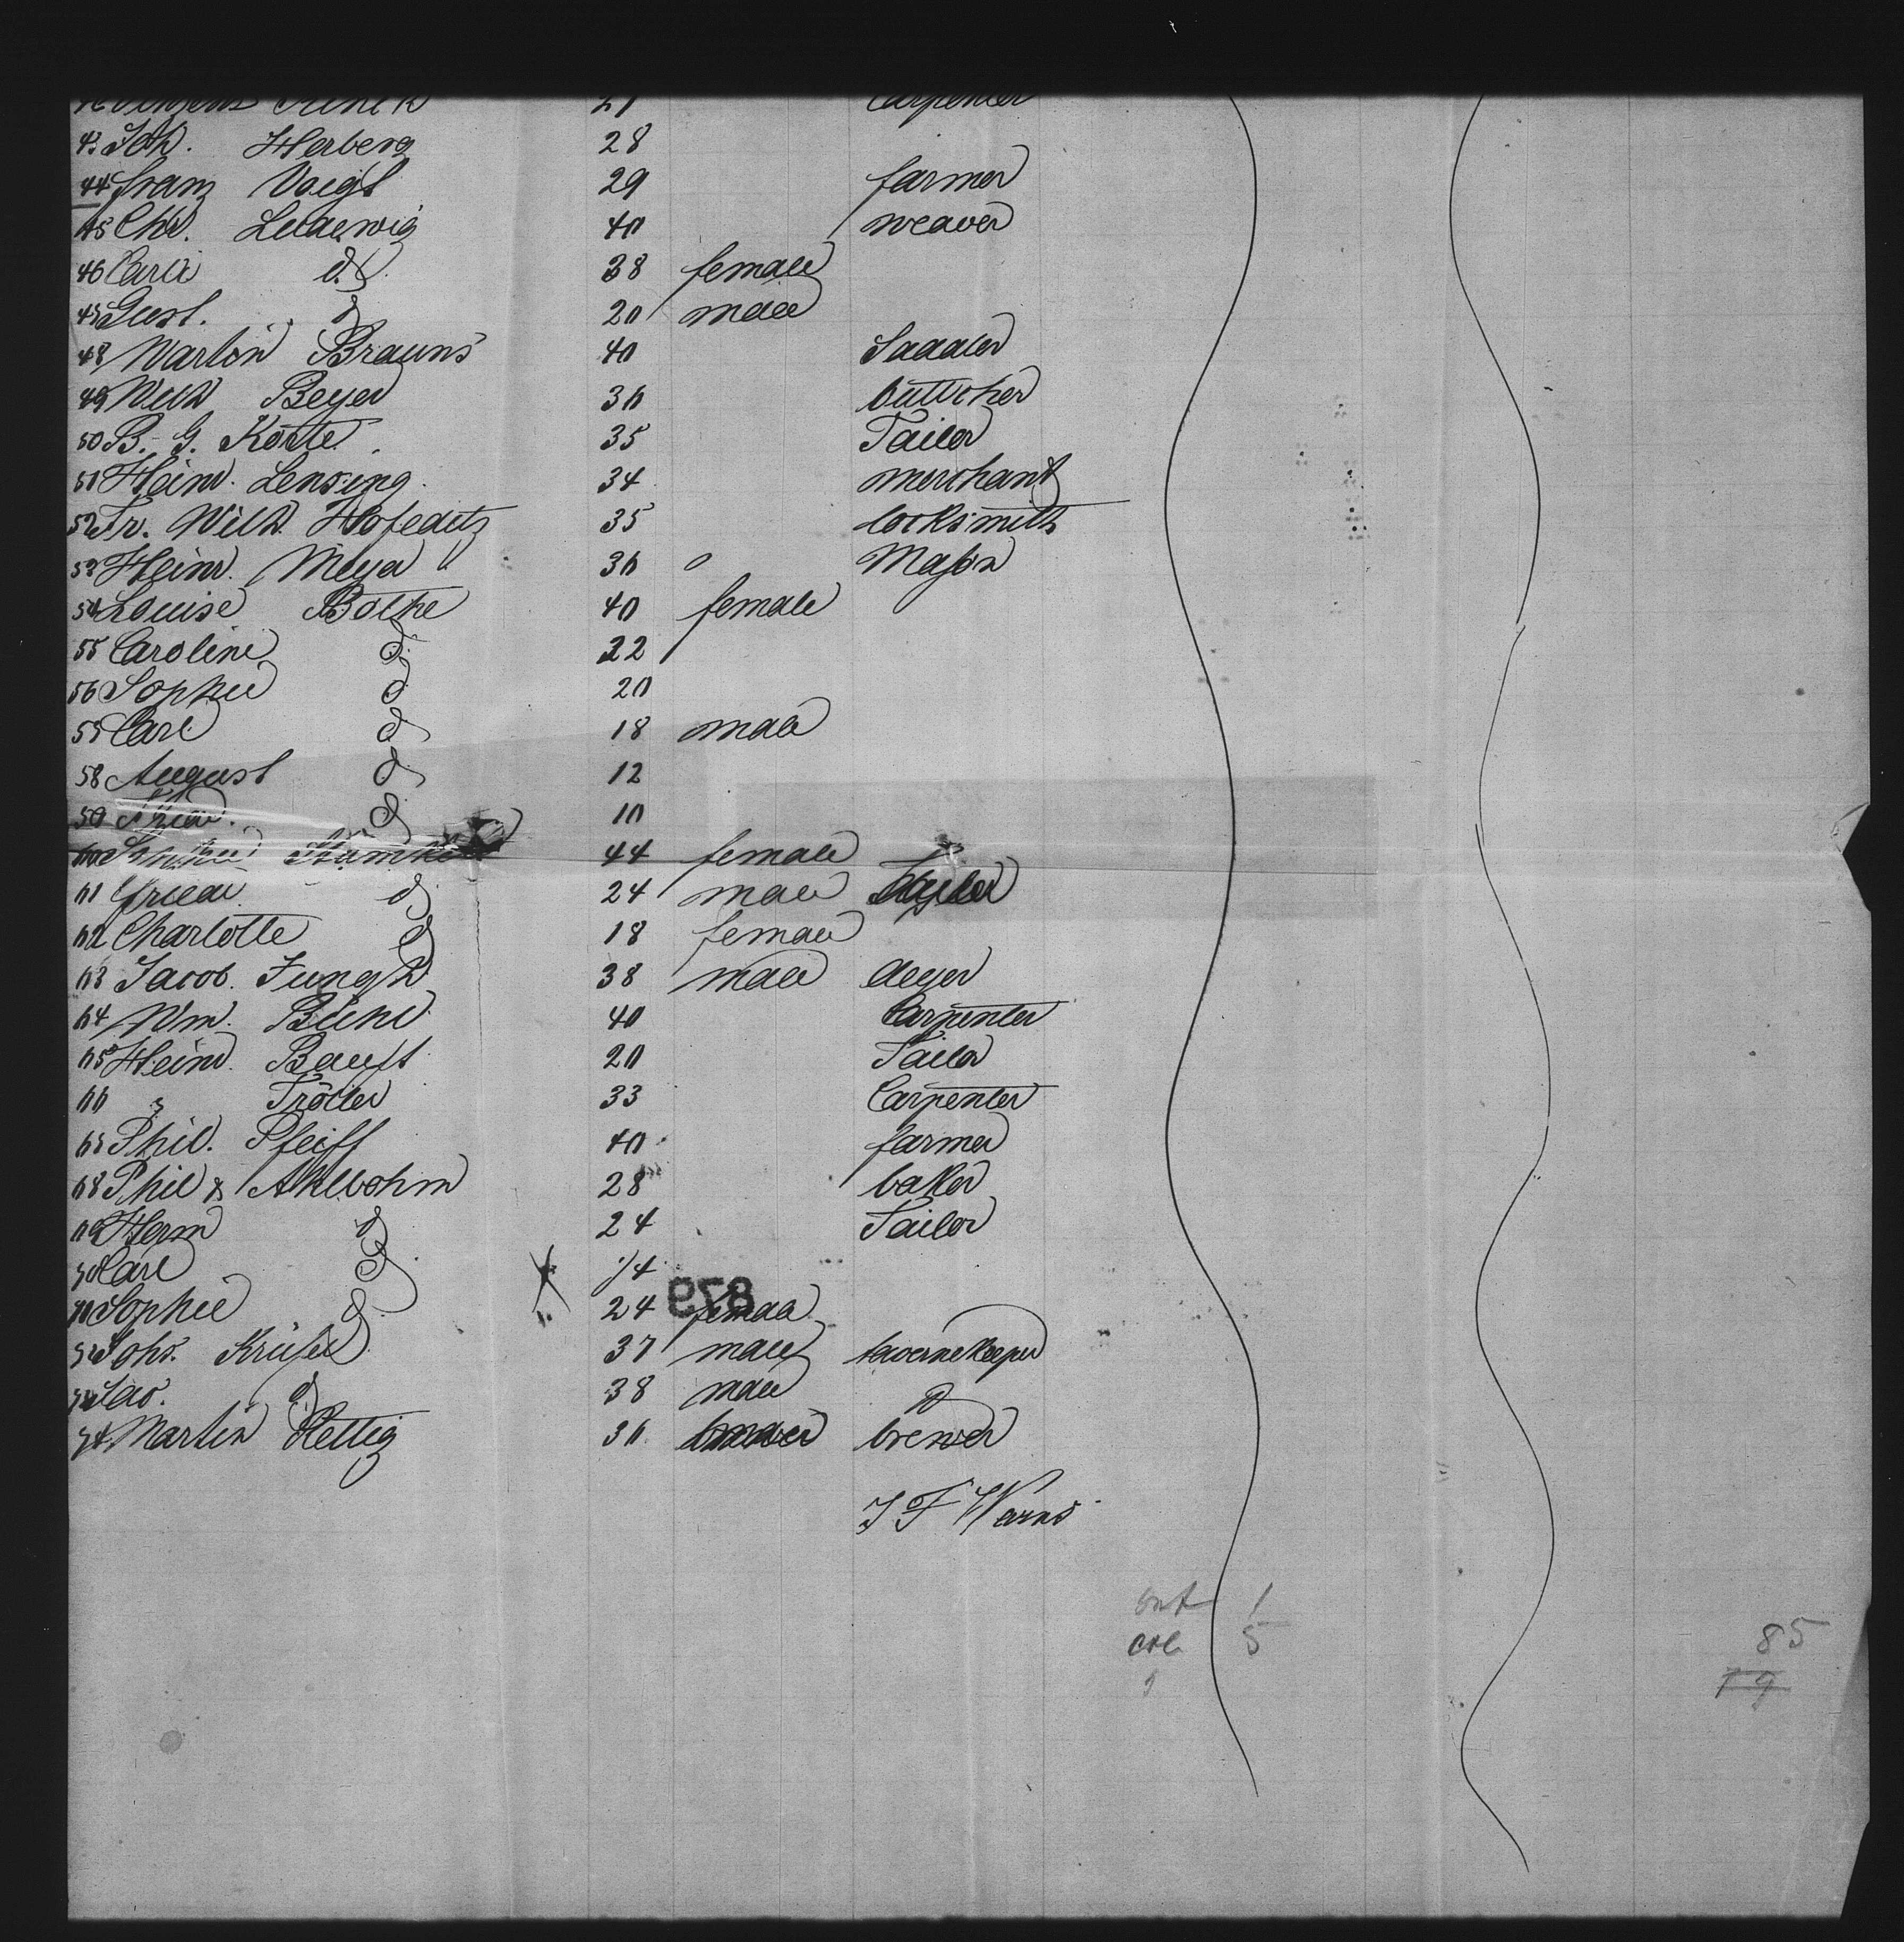 Carpenter
43 Joh. Herberg 28
44 Franz Voigt 29 farmer
45 Chr. Ludewig 40 weaver
46 Carli d. 38 female
47 Gust. d 20 male
48 Martin Brauns 40 Saddler
49 Wilh Beyer 36 buttcher
50 B. G. Körte 35 Tailor
51 Heinr. Lensing 34 merchant
52 Fr. Wilh. Hofeditz 35 locksmith
53 Heinr. Meyer 36 Mason
54 Louise Bothe 40 female
55 Caroline d. 22
56 Sophie d 20
57 Carl d 18 male
58 August d 12
59 Fried. d 10
60 44 female
61 Friedr. d. 24 male
62 Charlotte d 18 female
63 Jacob. Jungk 38 male deyer
64 Wm. 40 Carpenter
65 Heinr. 20 Tailor
66 " Tröller 33 Carpenter
67 Phil. Pfeiff 40 farmer
68 Phil Ahlbohm 28 baker
69 Herm d 24 Tailor
70 Carl d 
71 Sophie d 24 female
879
72 Johs. 37 male tavernekeeper
73 Jac. d 38 male d
74 Martin Rettig 36 brewer
J F Warns
1
5
85
79